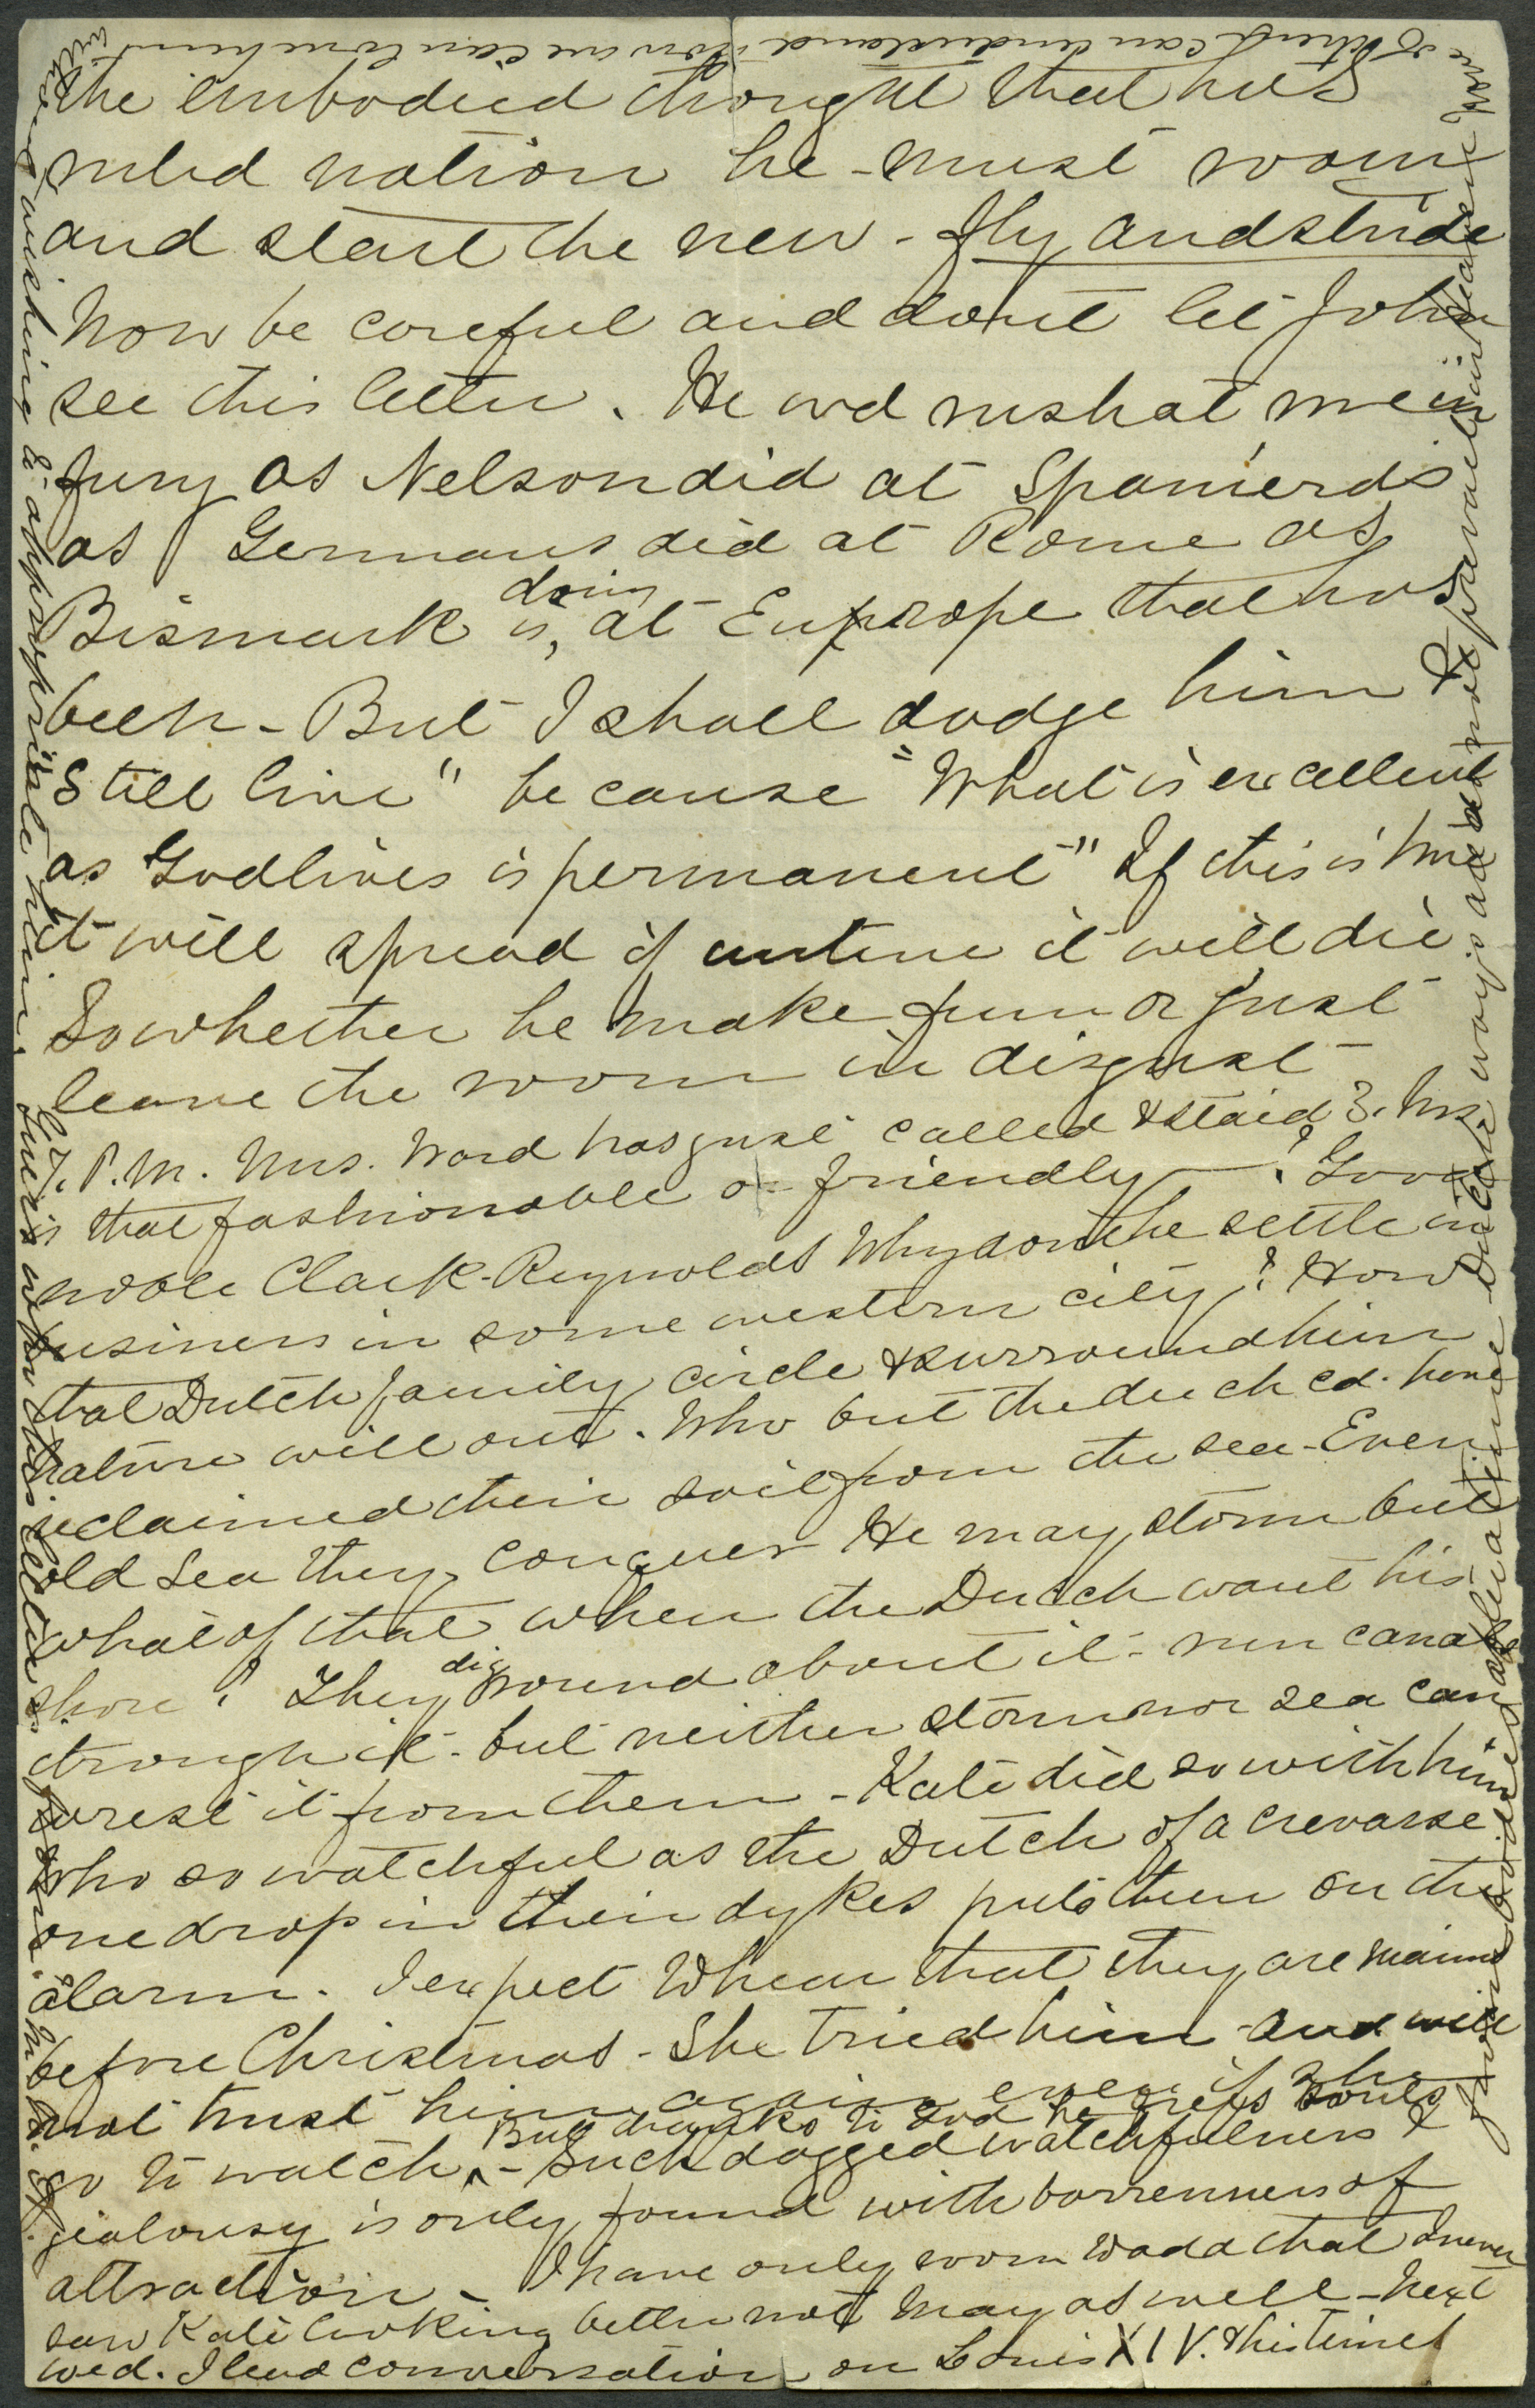 the embodied thought that has
ruled nation he must room
and start the new - fly and stride
Now be careful and dont let John
see this letter. He wd rush at me in
fury as Nelson did at Spanierds
as Germans did at Rome as
Bismark is, doing at Europe that has
been - But I shall dodge him &
"Still live" because "What is excellent
as God lives is permanent" If this is true
it will spread if untrue it will die
So whether he make fun or just
leave the room in disgust
7. P.M. Mrs. Ward has just called & staid 3. hrs
is that fashionable or friendly - ? Good
noble Clark-Reynolds Why dont he settle in
business in some western city? How
that Dutch family circle & surround him
Nature will out. Who but the dutch cd. have
reclaimed their soil from the sea - Even
old Sea they conquer He may storm but
what of that when the Dutch want his
shore? They dig round about it - run canals
through it - but neither storm nor sea can
wrest it from them - Kate did so with him
who so watchful as the Dutch of a crevasse
one drop in their dykes puts them on the
alarm. I expect to hear that they are married
before Christmas - She tried him and will
not trust him again even if she
go to watch, - But thanks to God he frees souls
Such dogged watchfulness &
jealousy is only found with barrenness of
attraction - I have only room to add that I never
saw Kate looking better not May as well - Next
wed. I lead conversation on Louis XIV. & his times
can understand how we can love him
without wishing & appropriate him.